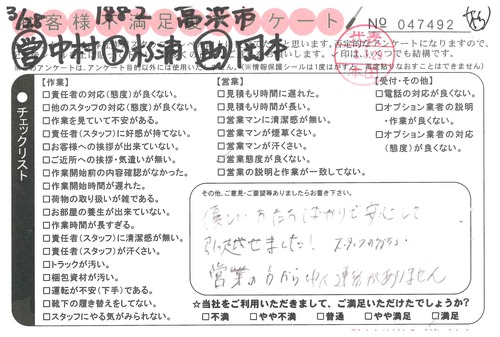 3/28 1128-2 高浜市
お客様不満足度アンケート
No 047492
営中村 下杉浦 助岡本
チェックリスト
【作業】
□責任者の対応(態度)が良くない。
□他のスタッフの対応(態度)が良くない。
□作業を見ていて不安がある。
□責任者(スタッフ)に好感が持てない。
□お客様への挨拶が出来ていない。
□ご近所への挨拶・気遣いが無い。
□作業開始前の内容確認がなかった。
□作業開始時間が遅れた。
□荷物の取り扱いが雑である。
□お部屋の養生が出来ていない。
□作業時間が長すぎる。
□責任者(スタッフ)に清潔感が無い。
□責任者(スタッフ)が汗くさい。
□トラックが汚い。
□梱包資材が汚い。
□運転が不安(下手)である。
□靴下の履き替えをしてない。
□スタッフにやる気がみられない。
【営業】
□見積もり時間に遅れた。
□見積もり時間が長い。
□営業マンに清潔感が無い。
□営業マンが煙草くさい。
□営業マンが汗くさい。
□営業態度が良くない。
□営業の説明と作業が一致してない。
【受付・その他】
□電話の対応が良くない。
□オプション業者の説明
・作業が良くない。
□オプション業者の対応
(態度)が良くない。
その他、ご意見・ご要望等ありましたらお書き下さい。
優しいかたちばかりで安心して
引越せました! スタッフの方々
営業の方から 連絡がありません
☆当社をご利用いただきまして、ご満足いただけたでしょうか
□不満 □やや不満 □普通 □やや満足 □満足